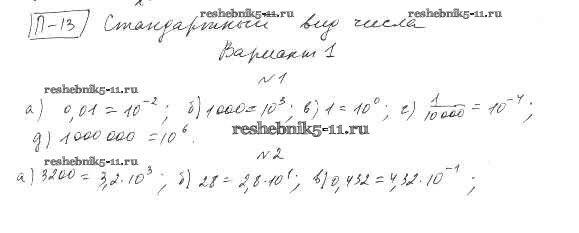 П-13 Стандартный вид числа
reshebnik5-11.ru
reshebnik5-11.ru
Вариант 1
№1
reshebnik5-11.ru
а) 0,01 = 10⁻²; б) 1000 = 10³; в) 1 = 10⁰; г) 1/10000 = 10⁻⁴;
д) 1000 000 = 10⁶.
reshebnik5-11.ru
№2
reshebnik5-11.ru
а) 3200 = 3,2·10³; б) 28 = 2,8·10¹; в) 0,432 = 4,32·10⁻¹;